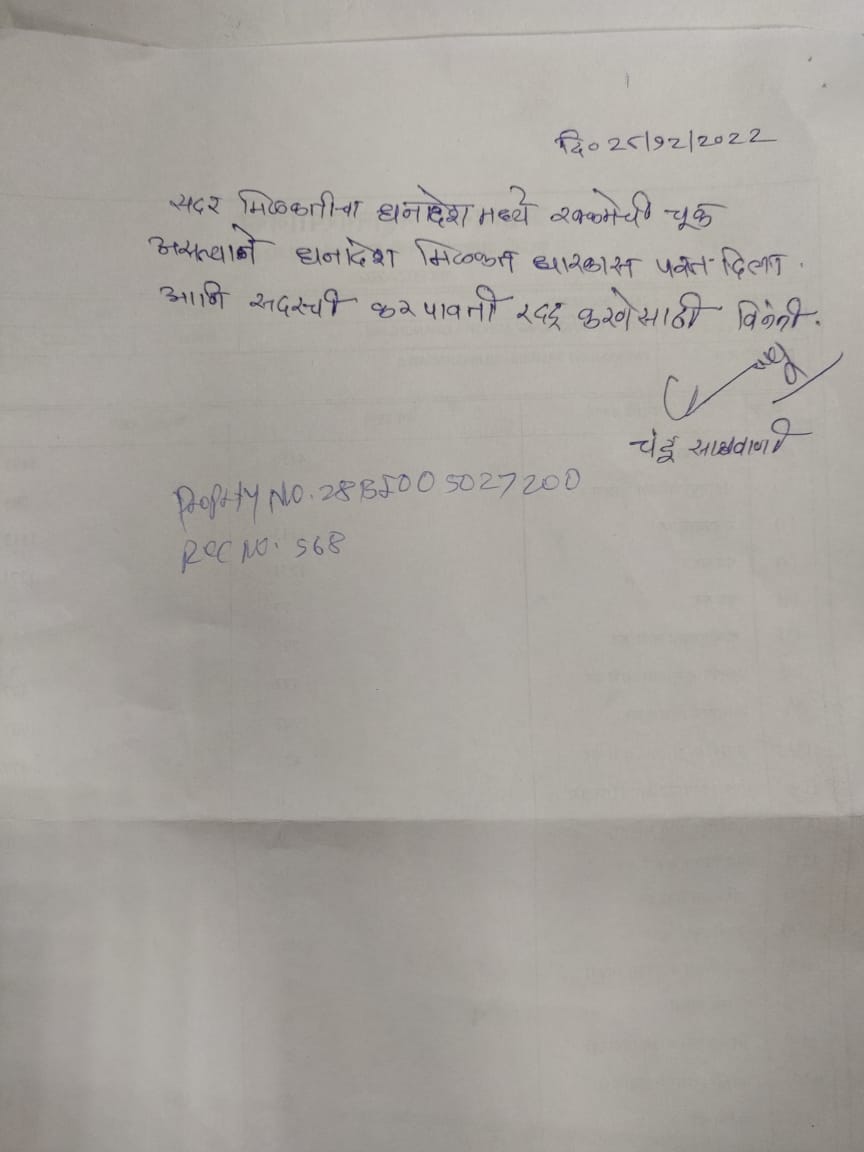 दि० २८/१२/२०२२
सदर मिळकतीचा धनादेश मध्ये रक्कमेची चूक
असल्याने धनादेश मिळकत धारकास परत दिला.
आणि सदरची कर पावती रद्द करणेसाठी विनंती.
चंदू
Property NO. 28BI005027200
REC NO. 568